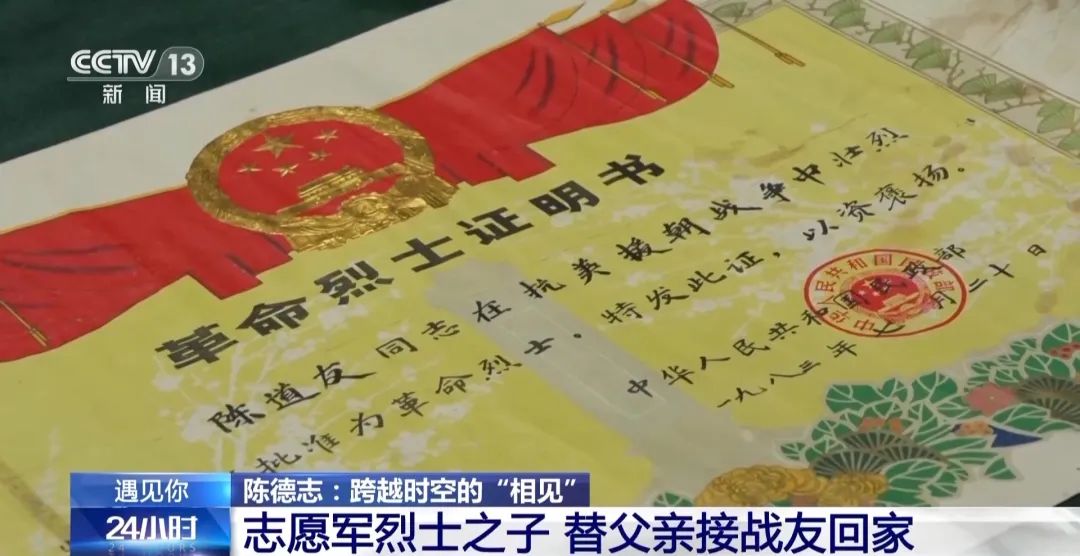 CCTV 13
新闻
革命烈士证明书
陈道友同志在抗美援朝战争中壮烈
批准为革命烈士。特发此证，以资褒扬。
中华人民共和国民政部
一九八三年七月二十日
遇见你
陈德志：跨越时空的“相见”
24小时
志愿军烈士之子 替父亲接战友回家